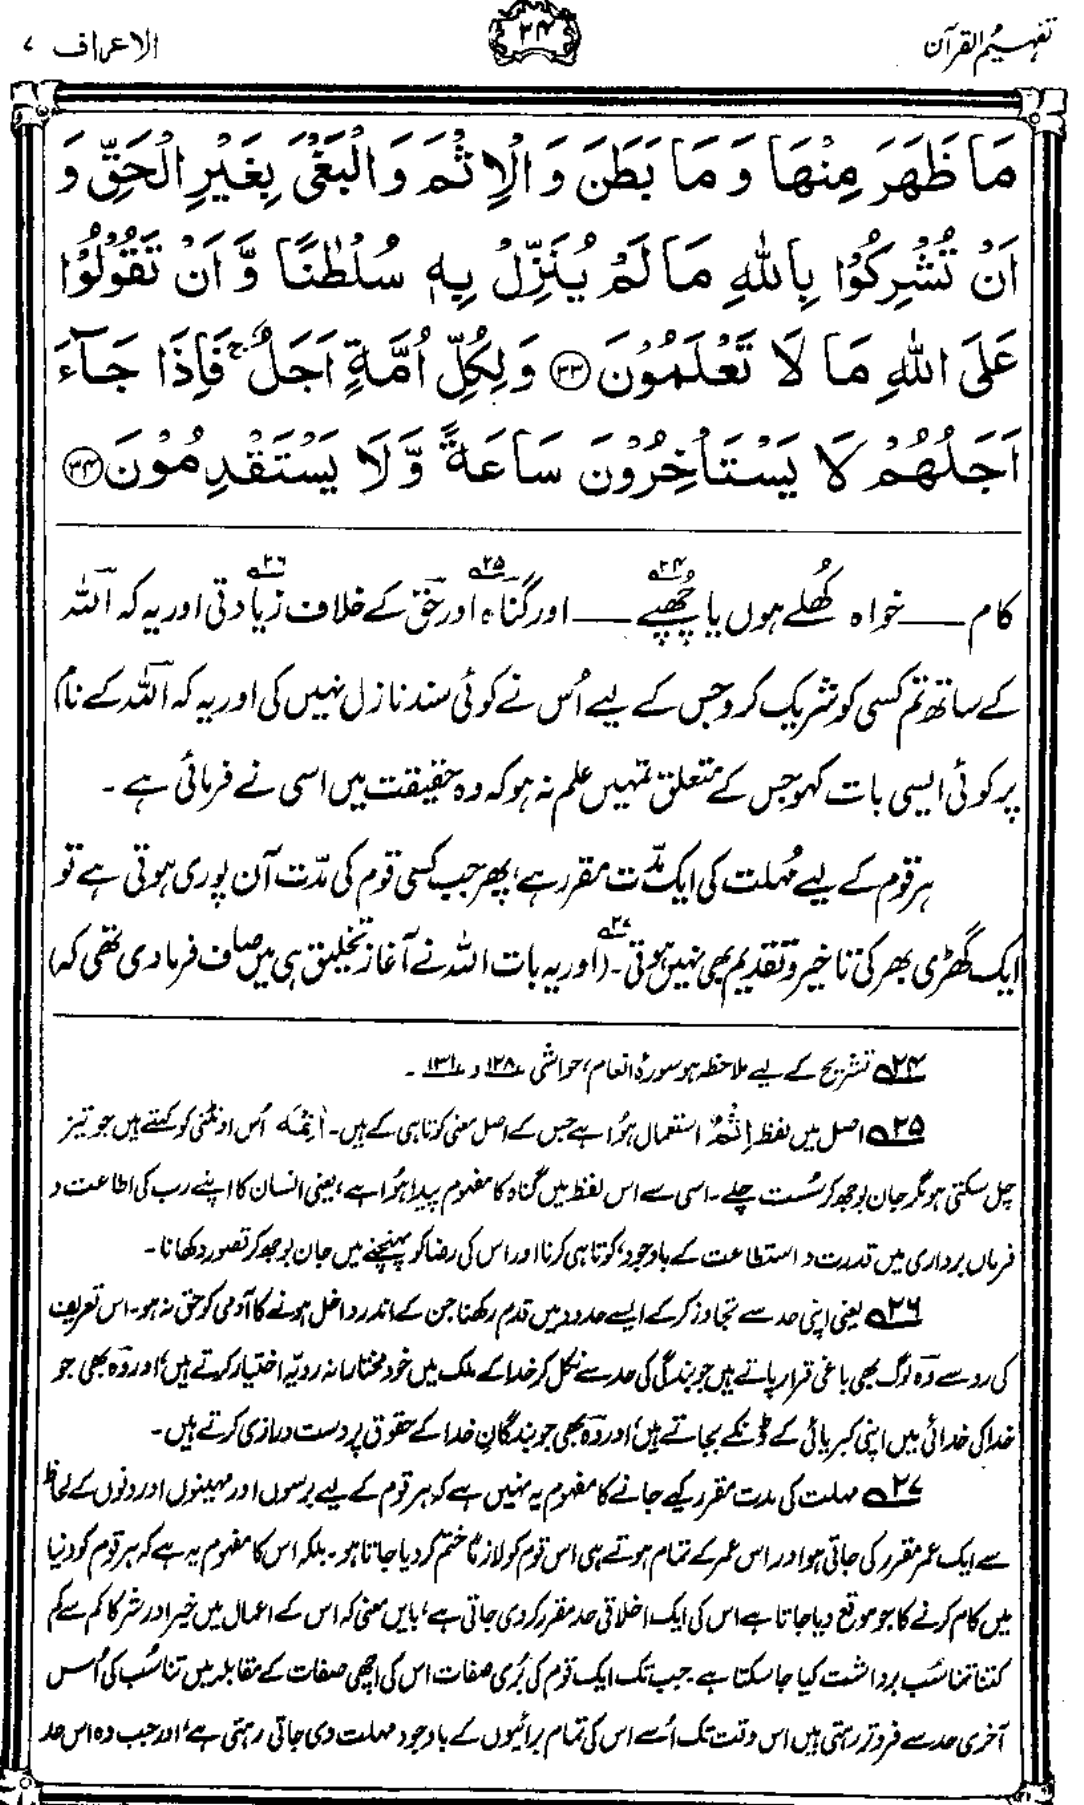 تفہیم القرآن
۳۴
الاعراف ۷
مَا ظَهَرَ مِنْهَا وَ مَا بَطَنَ وَ الْاِثْمَ وَ الْبَغْیَ بِغَیْرِ الْحَقِّ وَ
اَنْ تُشْرِكُوْا بِاللهِ مَا لَمْ یُنَزِّلْ بِهٖ سُلْطٰنًا وَّ اَنْ تَقُوْلُوْا
عَلَی اللهِ مَا لَا تَعْلَمُوْنَ ﴿۳۳﴾ وَ لِكُلِّ اُمَّةٍ اَجَلٌ ۚ فَاِذَا جَآءَ
اَجَلُهُمْ لَا یَسْتَاْخِرُوْنَ سَاعَةً وَّ لَا یَسْتَقْدِمُوْنَ ﴿۳۴﴾
کام ــــ خواہ کھُلے ہوں یا چھُپے ۲۴؎ ــــ اور گناہ ۲۵؎ اور حق کے خلاف زیادتی ۲۶؎ اور یہ کہ اللہ
کے ساتھ تم کسی کو شریک کرو جس کے لیے اُس نے کوئی سند نازل نہیں کی اور یہ کہ اللہ کے نام
پر کوئی ایسی بات کہو جس کے متعلق تمہیں علم نہ ہو کہ وہ حقیقت میں اسی نے فرمائی ہے ۔
ہر قوم کے لیے مُہلت کی ایک مدّت مقرر ہے، پھر جب کسی قوم کی مدّت آن پوری ہوتی ہے تو
ایک گھڑی بھر کی تاخیر و تقدیم بھی نہیں ہوتی ۲۷؎۔ (اور یہ بات اللہ نے آغازِ تخلیق ہی میں صاف فرما دی تھی کہ)
۲۴؎ تشریح کے لیے ملاحظہ ہو سورۂ انعام، حواشی ۱۲۸ و ۱۳۱ ۔
۲۵؎ اصل میں لفظ اِثْمٌ استعمال ہُوا ہے جس کے اصل معنی کوتاہی کے ہیں۔ اٰثِمَہ اُس اونٹنی کو کہتے ہیں جو تیز
چل سکتی ہو مگر جان بوجھ کر سُست چلے۔ اسی سے اس لفظ میں گناہ کا مفہوم پیدا ہُوا ہے، یعنی انسان کا اپنے رب کی اطاعت و
فرماں برداری میں قدرت و استطاعت کے باوجود، کوتاہی کرنا اور اس کی رضا کو پہنچنے میں جان بوجھ کر قصور دکھانا۔
۲۶؎ یعنی اپنی حد سے تجاوز کر کے ایسے حدود میں قدم رکھنا جن کے اندر داخل ہونے کا آدمی کو حق نہ ہو۔ اس تعریف
کی رو سے وہ لوگ بھی باغی قرار پاتے ہیں جو بندگی کی حد سے نکل کر خدا کے ملک میں خود مختارانہ رویّہ اختیار کرتے ہیں، اور وہ بھی جو
خدا کی خدائی میں اپنی کبریائی کے ڈنکے بجاتے ہیں، اور وہ بھی جو بندگانِ خدا کے حقوق پر دست درازی کرتے ہیں۔
۲۷؎ مہلت کی مدت مقرر کیے جانے کا مفہوم یہ نہیں ہے کہ ہر قوم کے لیے برسوں اور مہینوں اور دنوں کے لحاظ
سے ایک عمر مقرر کی جاتی ہو اور اس عمر کے تمام ہوتے ہی اس قوم کو لازمًا ختم کر دیا جاتا ہو۔ بلکہ اس کا مفہوم یہ ہے کہ ہر قوم کو دنیا
میں کام کرنے کا جو موقع دیا جاتا ہے اس کی ایک اخلاقی حد مقرر کر دی جاتی ہے، بایں معنی کہ اس کے اعمال میں خیر اور شر کا کم سے کم
کتنا تناسُب برداشت کیا جا سکتا ہے۔ جب تک ایک قوم کی بُری صفات اس کی اچھی صفات کے مقابلہ میں تناسُب کی اُس
آخری حد سے فروتر رہتی ہیں اس وقت تک اُسے اس کی تمام برائیوں کے باوجود مہلت دی جاتی رہتی ہے، اور جب وہ اس حد